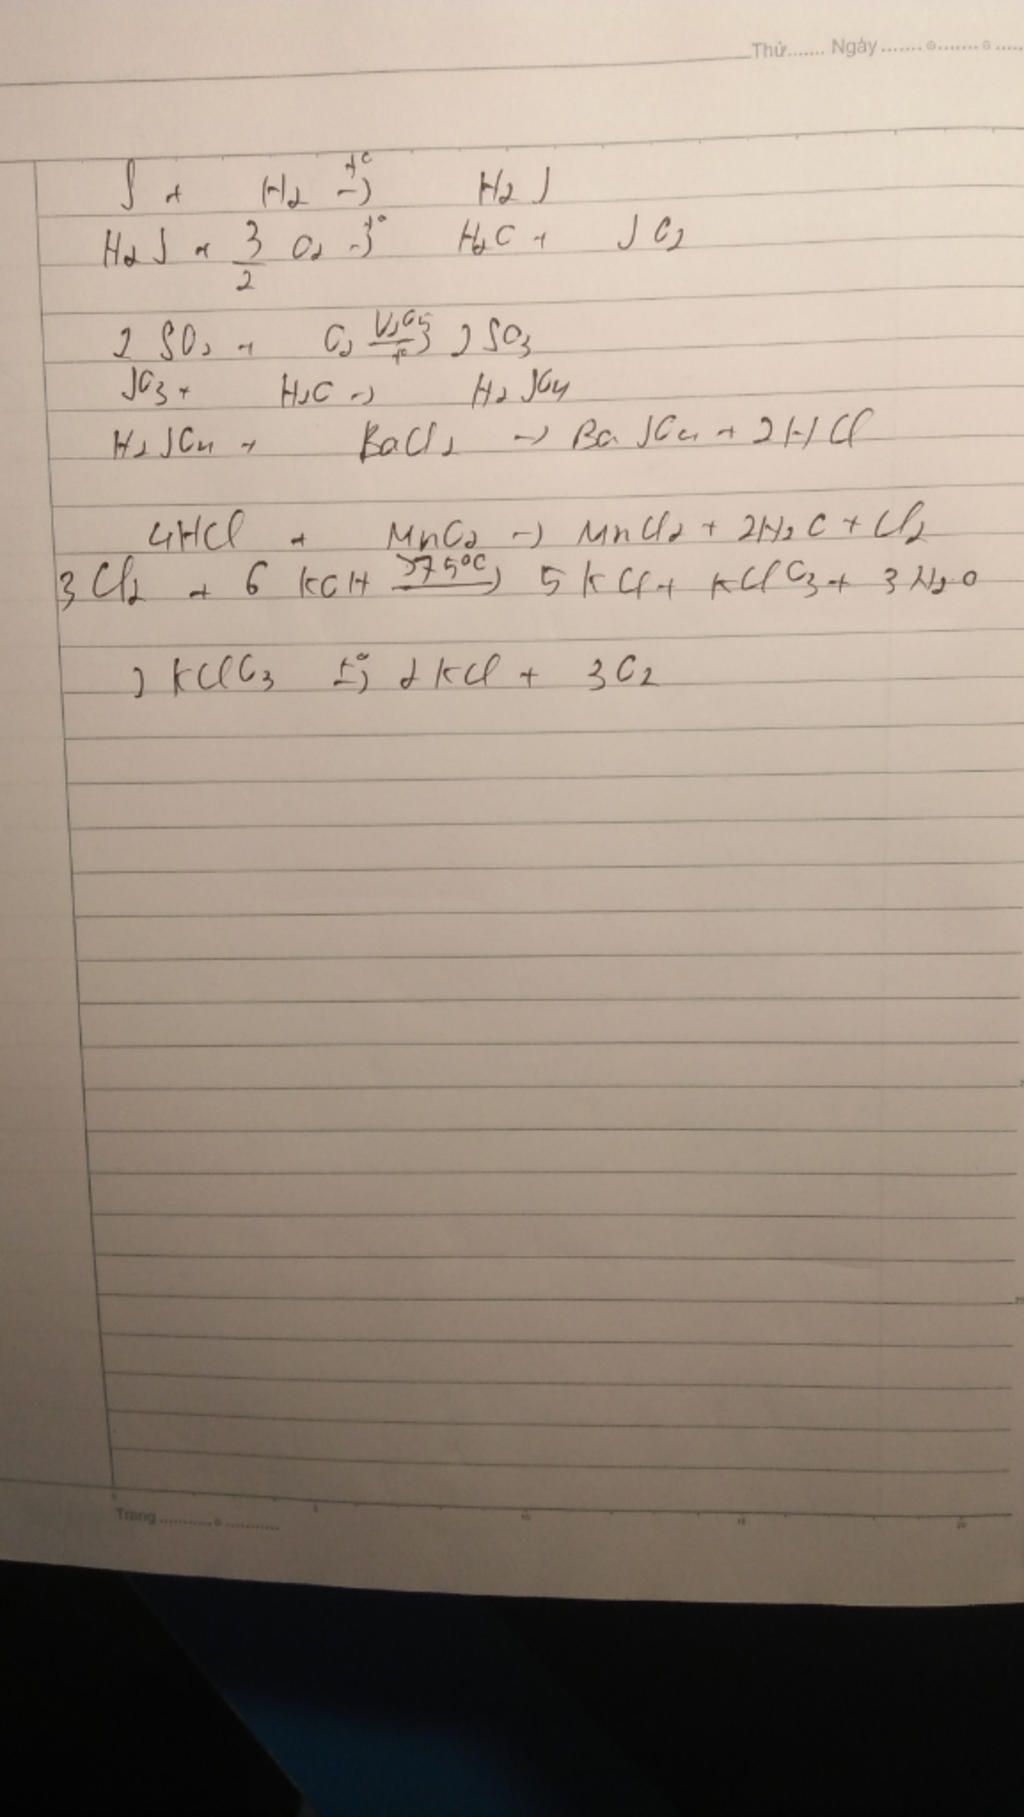 Thứ....... Ngày ....... o ....... o .....
S + H2 t° → H2S
H2S + 3/2 O2 t° → H2O + SO2
2SO2 + O2 V2O5 t° → 2SO3
SO3 + H2O → H2SO4
H2SO4 + BaCl2 → BaSO4 + 2HCl
4HCl + MnO2 → MnCl2 + 2H2O + Cl2
3Cl2 + 6KOH >75°C → 5KCl + KClO3 + 3H2O
2KClO3 t° → 2KCl + 3O2
Trang ........... o ...........